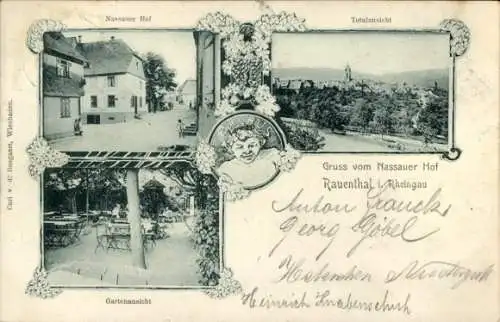 Nassauer Hof
Totalansicht
Carl v. d. Boogaart, Wiesbaden.
Gruss vom Nassauer Hof
Rauenthal i. Rheingau
Anton Franck,
Georg Göbel
Heinrich Knabenschuh
Gartenansicht